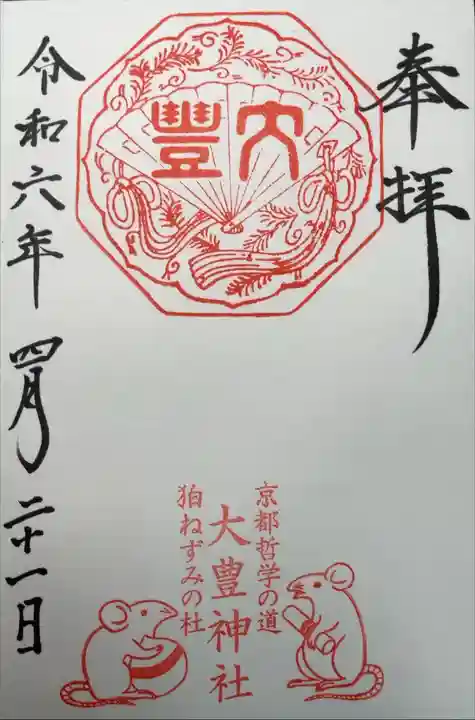 奉拝
大豊
京都哲学の道
大豊神社
狛ねずみの杜
令和六年四月二十一日